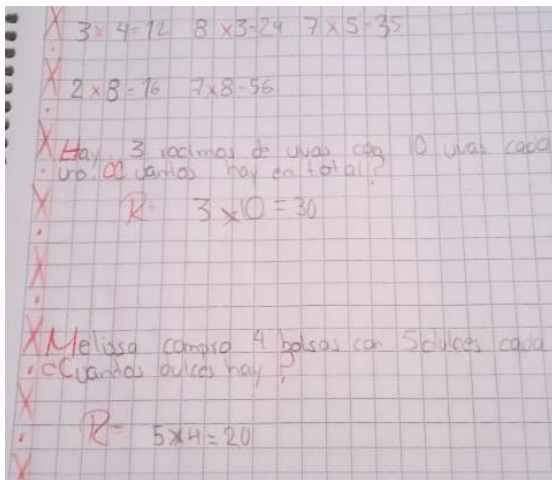 3 x 4=12 8 x 3=24 7 x 5=35
2 x 8=16 7x8=56
Hay 3 racimos de uvas con 10 uvas cada
uno ¿Cuantos hay en total?
R- 3 x 10 = 30
Melissa compro 4 bolsas con 5 dulces cada
¿Cuantos dulces hay?
R- 5x4=20